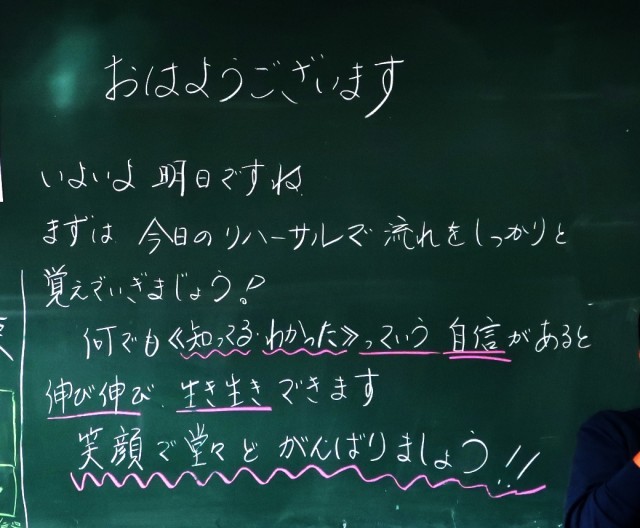 おはようございます
いよいよ 明日ですね
まずは 今日のリハーサルで 流れをしっかりと
覚えていきましょう!
何でも《知ってる・わかった》っていう 自信があると
伸び伸び 生き生き できます
笑顔で堂々と がんばりましょう!!